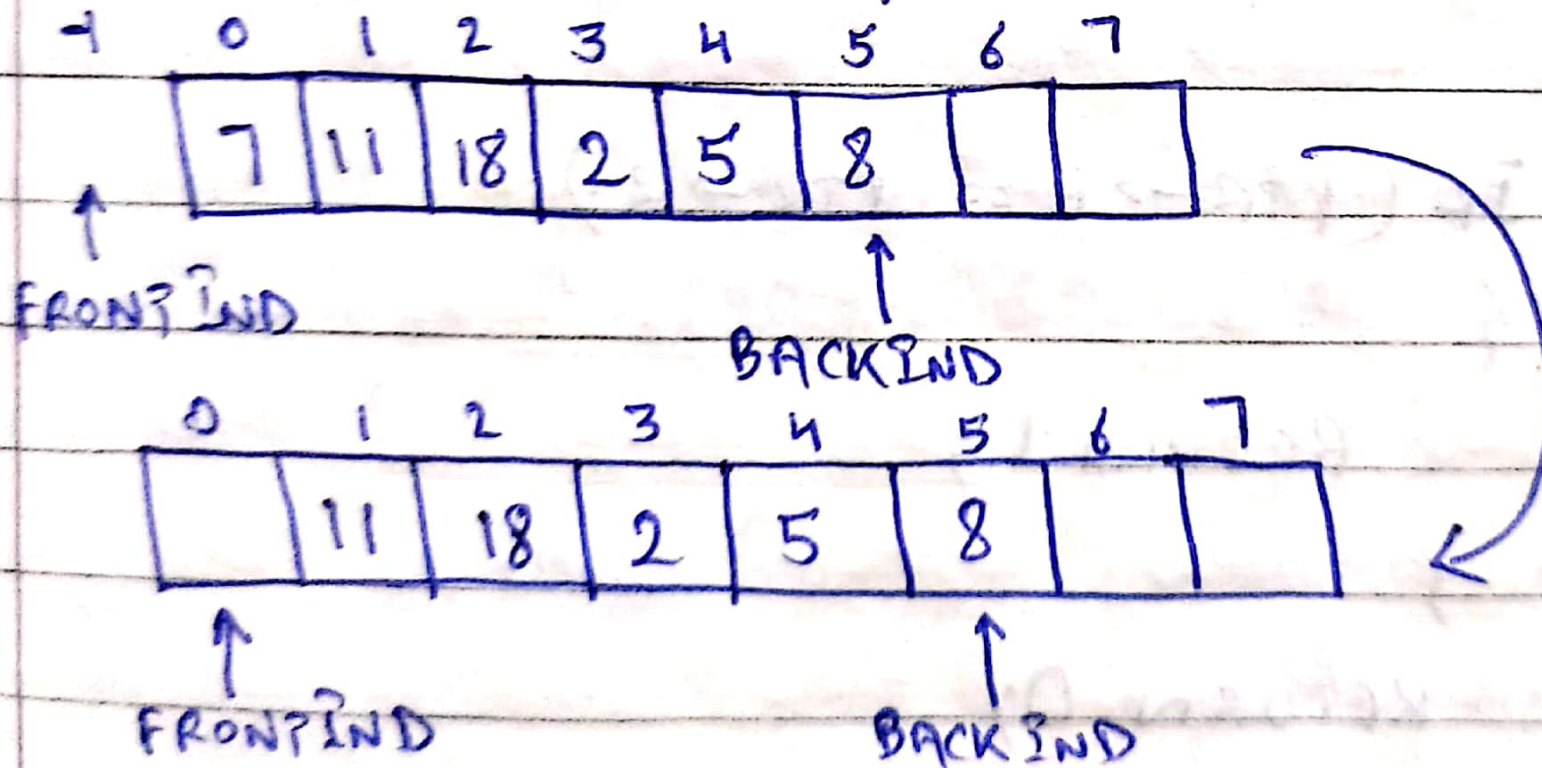 -1 0 1 2 3 4 5 6 7
7 11 18 2 5 8
FRONTIND
BACKIND
0 1 2 3 4 5 6 7
11 18 2 5 8
FRONTIND BACKIND